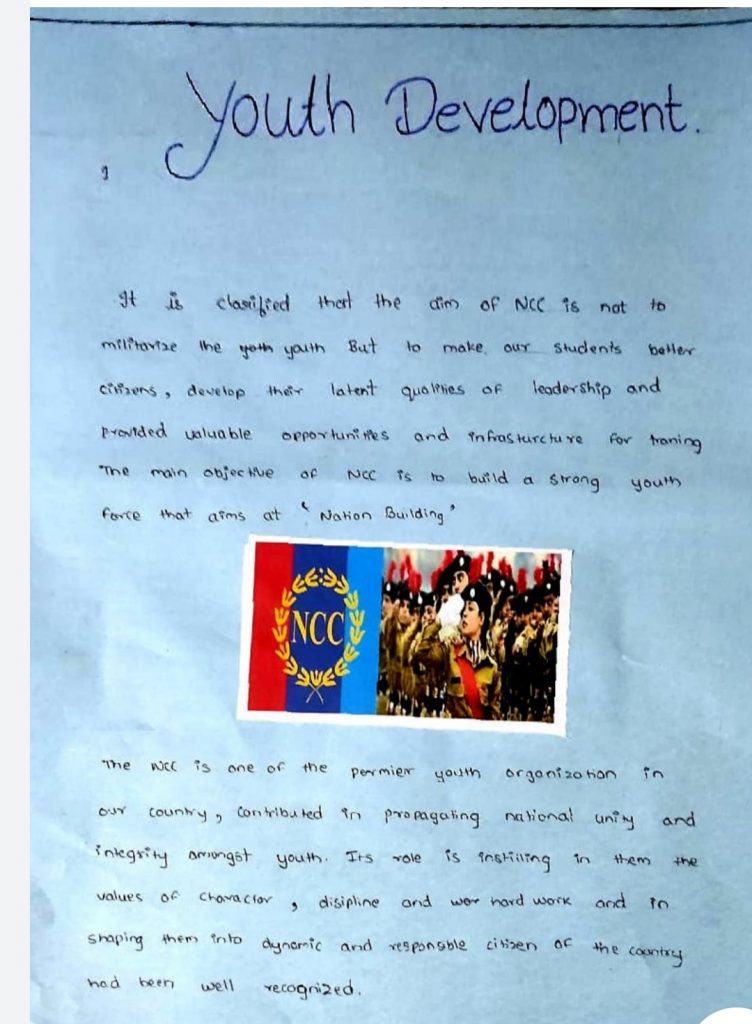 Youth Development.
It is clarified that the aim of NCC is not to
militarize the yoth youth But to make our students better
citizens, develop their latent qualities of leadership and
Provided valuable opportunities and infrasturcture for traning
The main objective of NCC is to build a strong youth
force that aims at ' Nation Building'
NCC
The NCC is one of the permier youth organization in
our country, Contributed in propagating national unity and
integrity amongst youth. Its role is instilling in them the
values of character, disipline and wor hard work and in
shaping them into dynamic and responsble citizen of the country
had been well recognized.